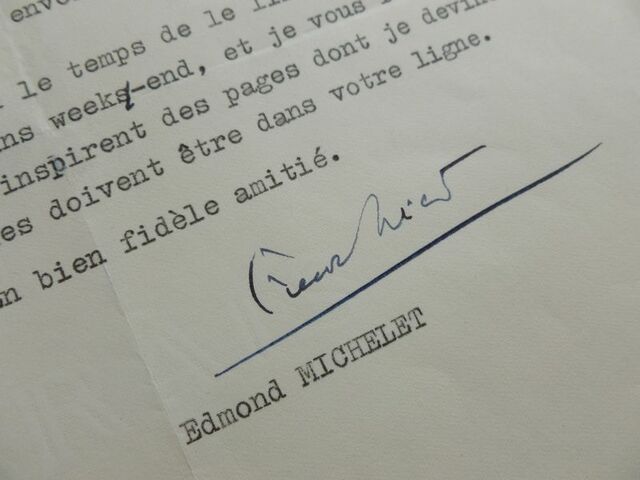 le temps de le li
ns weeks-end, et je vous
inspirent des pages dont je devin
es doivent être dans votre ligne.
n bien fidèle amitié.
Edmond MICHELET